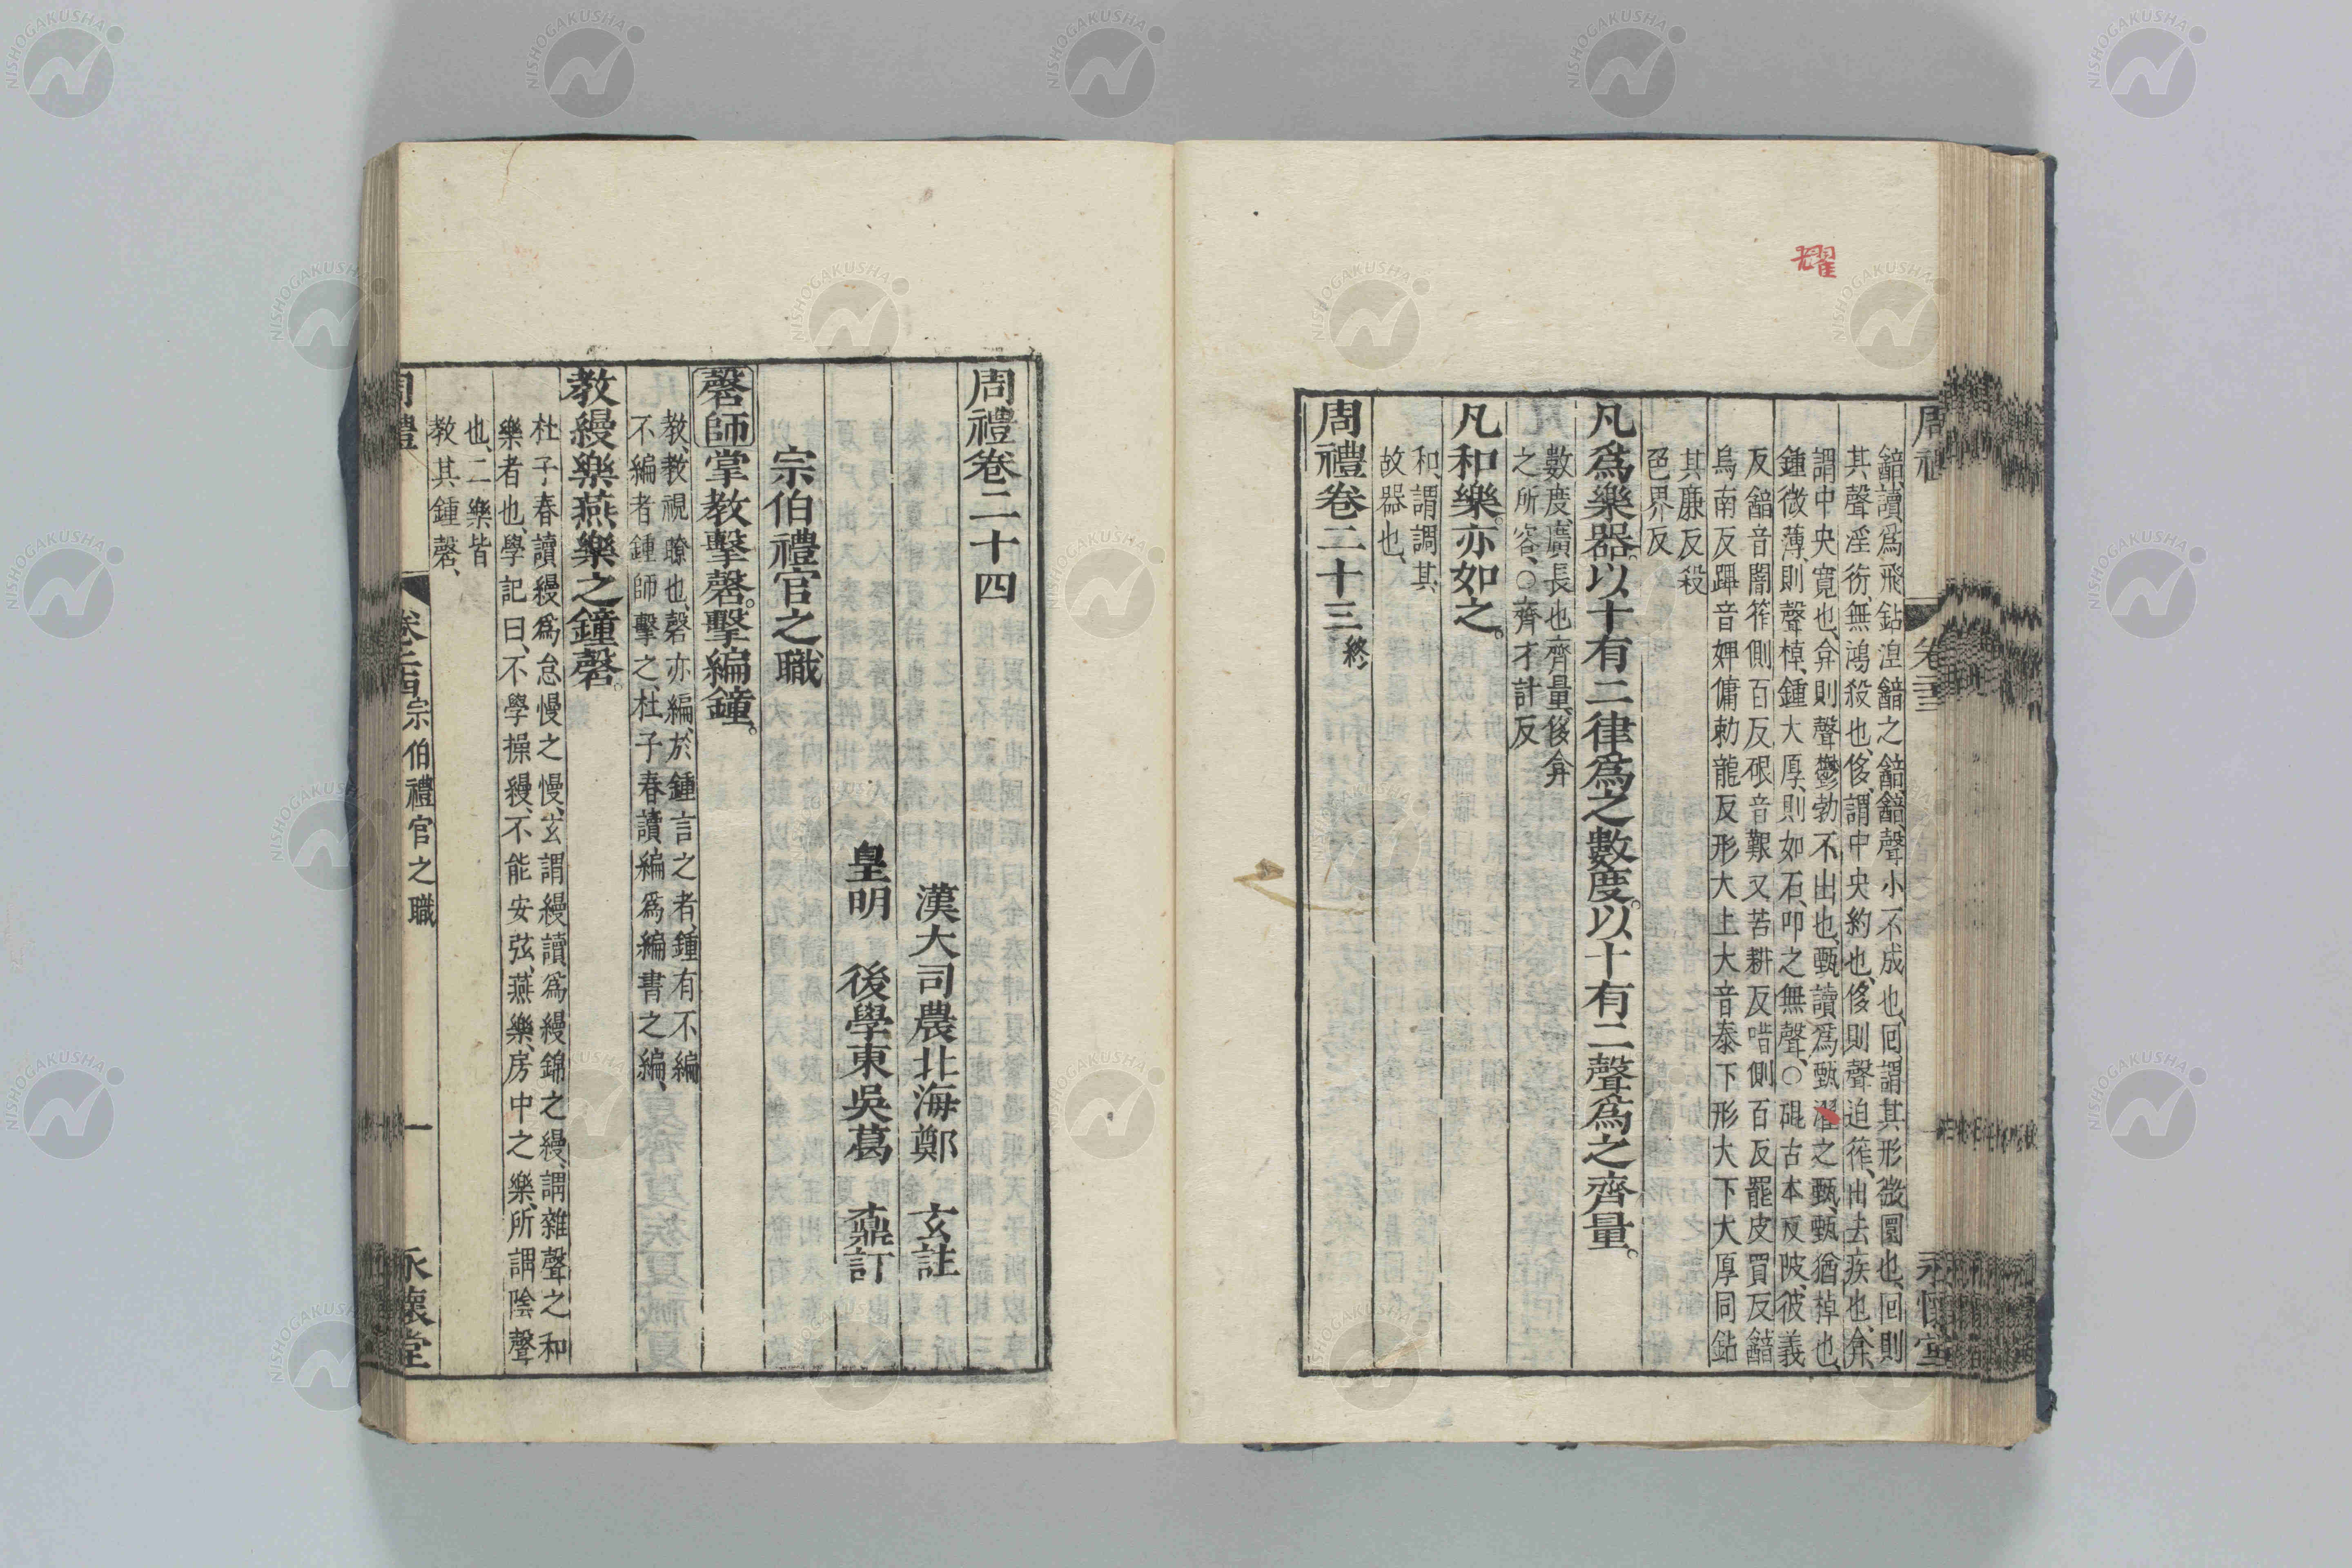 耀
韽讀爲飛鉆湼韽之韽韽聲小不成也回謂其形微圜也回則
其聲淫衍無鴻殺也侈謂中央約也侈則聲迫筰出去疾也弇
謂中央寬也弇則聲鬱勃不出也甄讀爲甄濯之甄甄猶掉也
鍾微薄則聲掉鍾大厚則如石叩之無聲○硍古本反陂彼義
反韽音闇筰側百反硍音艱又苦耕反唶側百反罷皮買反韽
烏南反䠋音婢傭勅龍反形大上大音泰下形大下大厚同鉆
其廉反殺
色界反
凡爲樂器以十有二律爲之數度以十有二聲爲之齊量
數度廣長也齊量侈弇
之所容○齊才計反
凡和樂亦如之
和謂調其
故器也
周禮卷二十三終
周禮卷二十四
漢大司農北海鄭 玄註
皇明 後學東吳葛 鼒訂
宗伯禮官之職
磬師掌教擊磬擊編鐘
教教視瞭也磬亦編於鍾言之者鍾有不編
不編者鍾師擊之杜子春讀編爲編書之編
教縵樂燕樂之鐘磬
杜子春讀縵爲怠慢之慢玄謂縵讀爲縵錦之縵謂雜聲之和
樂者也學記曰不學操縵不能安弦燕樂房中之樂所謂陰聲
也二樂皆
教其鍾磬
周禮 卷二十四 宗伯禮官之職 一 永懷堂
NISHOGAKUSHA